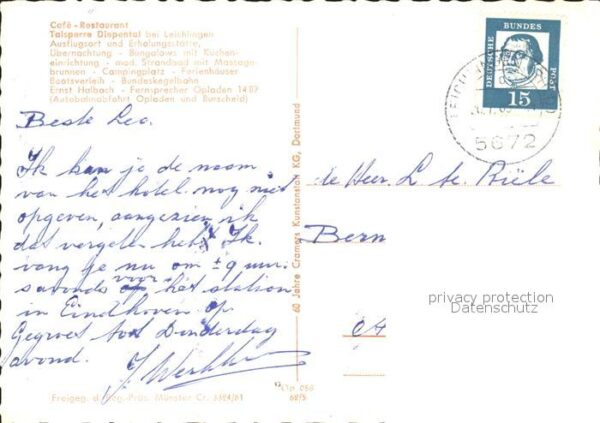 Café - Restaurant
Talsperre Diepental bei Leichlingen
Ausflugsort und Erholungsstätte,
Übernachtung - Bungalows mit Küchen-
einrichtung - mod. Strandbad mit Massage-
brunnen - Campingplatz - Ferienhäuser
Bootsverleih - Bundeskegelbahn
Ernst Halbach - Fernsprecher Opladen 1487
(Autobahnabfahrt Opladen und Burscheid)
Beste Leo.
Ik kan je de naam
van het hotel nog niet
opgeven, aangezien ik
dat vergeten heb. Ik
vang je nu om ± 9 uur.
s'avonds voor het station
in Eindhoven op.
Gegroet tot Donderdag
avond.
Freigeg. d. Reg.-Präs. Münster Cr. 3384/61
60 Jahre Cramers Kunstanstalt KG, Dortmund
DEUTSCHE
BUNDES
POST
15
5672
de Heer L te Riële
Bern
privacy protection
Datenschutz